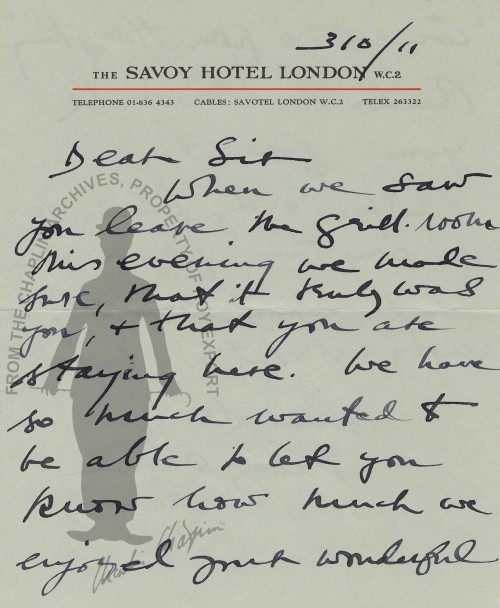 310/11
THE SAVOY HOTEL LONDON W.C.2
TELEPHONE 01-836 4343 CABLES: SAVOTEL LONDON W.C.2 TELEX 263322
Dear Sir
When we saw
you leave the grill-room
this evening we made
sure, that it truly was
you, & that you are
staying here. We have
so much wanted to
be able to let you
know how much we
enjoyed your wonderful
FROM THE CHAPLIN ARCHIVES, PROPERTY OF ROY EXPORT
Charlie Chaplin